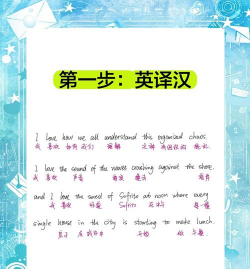 第一步：英译汉
I love how we all understand this organized chaos.
我 喜欢 如何 我们 理解 这种
I love the sound of the waves crashing against the shore.
我 喜欢 声音 海浪
and I love the smell of Sofrito at noon where every
我 喜欢 Sofrito 在中午 每一
single house in the city is starting to make lunch.
房子 在城市中 开始 做 午餐